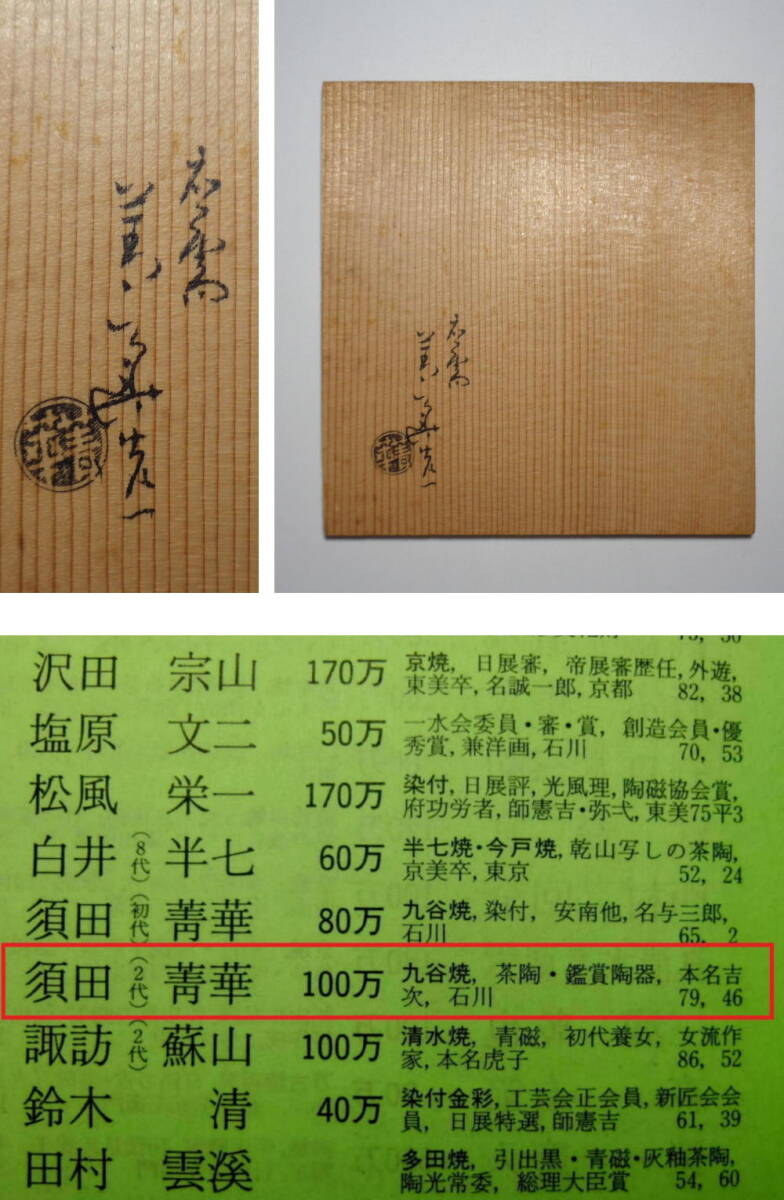 沢田 宗山 170万 京焼, 日展審, 帝展審歴任, 外遊,
東美卒, 名誠一郎, 京都 82, 38
塩原 文二 50万 一水会委員・審・賞, 創造会員・優
秀賞, 兼洋画, 石川 70, 53
松風 栄一 170万 染付, 日展評, 光風理, 陶磁協会賞,
府功労者, 師憲吉・弥弌, 東美75平3
白井(8代)半七 60万 半七焼・今戸焼, 乾山写しの茶陶,
京美卒, 東京 52, 24
須田(初代)菁華 80万 九谷焼, 染付, 安南他, 名与三郎,
石川 65, 2
須田(2代)菁華 100万 九谷焼, 茶陶・鑑賞陶器, 本名吉
次, 石川 79, 46
諏訪(2代)蘇山 100万 清水焼, 青磁, 初代養女, 女流作
家, 本名虎子 86, 52
鈴木 清 40万 染付金彩, 工芸会正会員, 新匠会会
員, 日展特選, 師憲吉 61, 39
田村 雲溪 多田焼, 引出黒・青磁・灰釉茶陶,
陶光常委, 総理大臣賞 54, 60